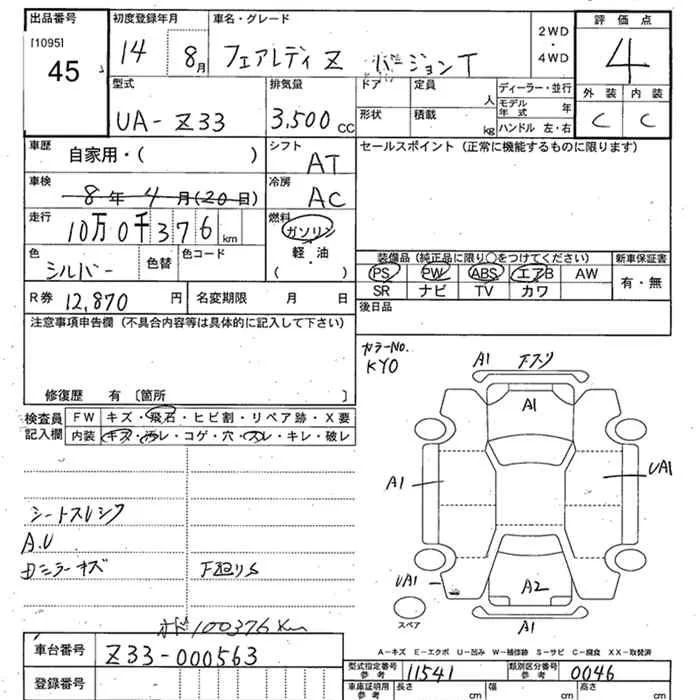 出品番号 初度登録年月 車名・グレード 評価点
[1095] 14 8月 フェアレディ Z バージョンT 2WD ・ 4WD 4
45
型式 排気量 ドア 定員 人 ディーラー・並行 外装 内装
UA-Z33 3,500 CC 形状 積載 kg モデル年式 年 C C
ハンドル 左・右
車歴 自家用・( ) シフト AT セールスポイント (正常に機能するものに限ります)
車検 8年 4月(20日) 冷房 AC
走行 10万0千376 km 燃料 ガソリン
軽・油
( )
色 シルバー 色替 色コード 装備品 (純正品に限り○をつけてください) 新車保証書
PS PW ABS エアB AW 有・無
R券 12,870 円 名変期限 月 日 SR ナビ TV カワ
注意事項申告欄 (不具合内容等は具体的に記入して下さい) 後日品
カラーNo. KY0
修復歴 有 〔箇所 〕
検査員記入欄 FW キズ・飛石・ヒビ割・リペア跡・X要
内装 キズ・汚レ・コゲ・穴・スレ・キレ・破レ
A1 Fスリ
A1
A1 UA1
シートスレシワ
A.U
ミラーキズ F廻りS
UA1 A2
スペア A1
オド100376Km
A-キズ E-エクボ U-凹み W-補修跡 S-サビ C-腐食 XX-取替済
車台番号 Z33-000563
型式指定番号 参考 11541 類別区分番号 参考 0046
登録番号 車庫証明用 参考 長さ cm 幅 cm 高さ cm